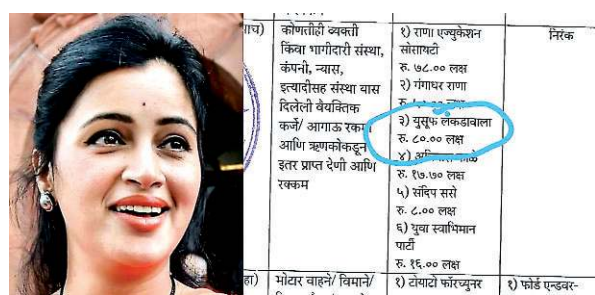 ाच)
कोणतीही व्यक्ती
किंवा भागीदारी संस्था,
कंपनी, न्यास,
इत्यादीसह संस्था यास
दिलेली वैयक्तिक
कर्जे/ आगाऊ रकमा
आणि ऋणकोकडून
इतर प्राप्त देणी आणि
रक्कम
१) राणा एज्युकेशन
सोसायटी
रु. ७८.०० लक्ष
२) गंगाधर राणा
३) युसूफ लकडावाला
रु. ८०.०० लक्ष
४)
रु. १७.७० लक्ष
५) संदिप ससे
रु. ८.०० लक्ष
६) युवा स्वाभिमान
पार्टी
रु. १६.०० लक्ष
निरंक
हा)
मोटार वाहने/ विमाने/
१) टोयाटो फॉरच्युनर
१) फोर्ड एन्डवर-